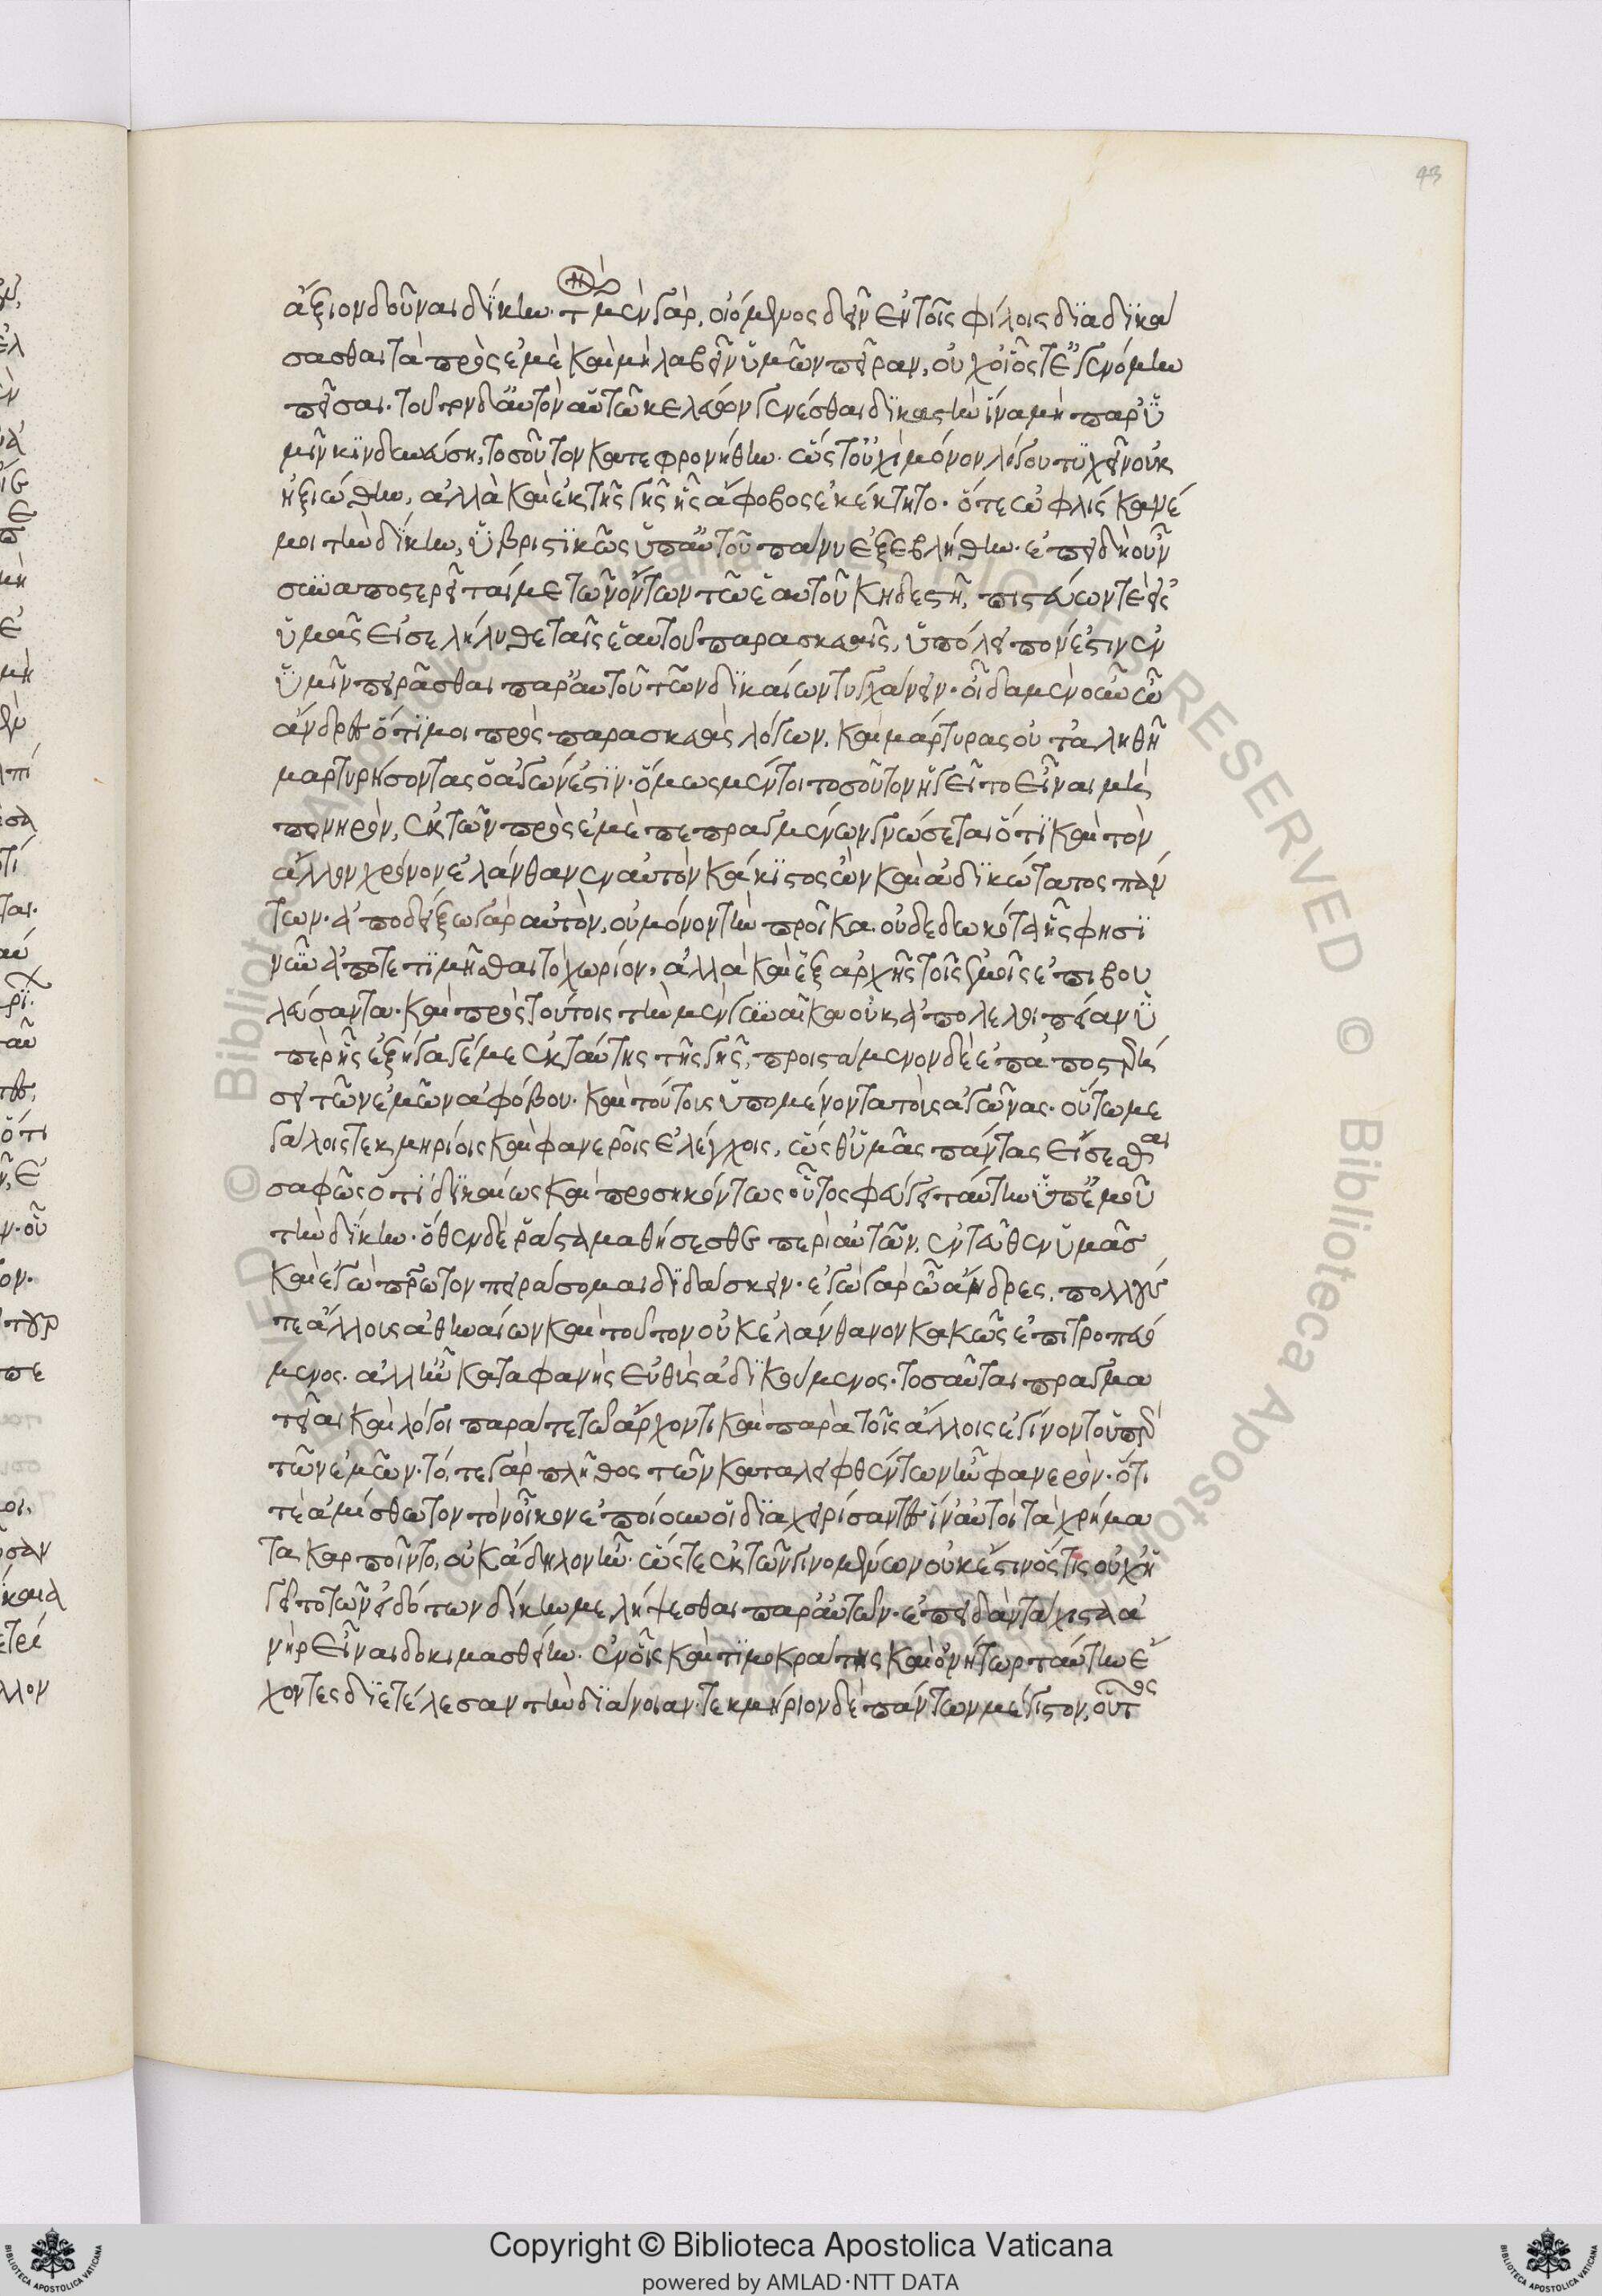 43
ἄξιον δοῦναι δίκην. τὸν μὲν γὰρ, οἰόμενος δεῖν ἐν τοῖς φίλοις διαδικά
σασθαι τὰ πρὸς ἐμὲ καὶ μὴ λαβεῖν ὑμῶν πεῖραν, οὐχ οἷός τ' ἐγενόμην
πεῖσαι. τοῦτον δ' αὐτὸν αὑτῷ κελεύων γενέσθαι δικαστὴν ἵνα μὴ παρ' ὑ
μῖν κινδυνεύσῃ, τοσοῦτον κατεφρονήθην. ὥστ' οὐχὶ μόνον λόγου τυχεῖν οὐκ
ἠξιώθην, ἀλλὰ καὶ ἐκ τῆς γῆς ἧς ἄφοβος ἐκέκτητο. ὅτε ὠφλίσκανέ
μοι τὴν δίκην, ὑβριστικῶς ὑπ' αὐτοῦ πάνυ ἐξεβλήθην. ἐπειδὴ οὖν
συναποστερεῖ ταί με τῶν ὄντων τῷ ἑαυτοῦ κηδεστῇ, πιστεύων τε εἰς
ὑμᾶς εἰσελήλυθε ταῖς ἑαυτοῦ παρασκευαῖς, ὑπόλειπόν ἐστιν ἐν
ὑμῖν πειρᾶσθαι παρ' αὐτοῦ τῶν δικαίων τυγχάνειν. οἶδα μὲν οὖν ὦ
ἄνδρες ὅτι μοι πρὸς παρασκευὰς λόγων, καὶ μάρτυρας οὐ τἀληθῆ
μαρτυρήσοντας ὁ ἀγών ἐστιν. ὅμως μέντοι τοσοῦτον
πονηρὸν, ἐκ τῶν πρὸς ἐμὲ πεπραγμένων γνώσεται ὅτι καὶ τὸν
ἄλλον χρόνον ἐλάνθανεν αὐτὸν κάκιστος ὢν καὶ ἀδικώτατος πάν
των. ἀποδείξω γὰρ αὐτὸν, οὐ μόνον τὴν προῖκα οὐ δεδωκότα ἧς φησὶ
νῦν ἀποτετιμῆσθαι τὸ χωρίον, ἀλλὰ καὶ ἐξ ἀρχῆς τοῖς ἐμοῖς ἐπιβου
λεύσαντα. καὶ πρὸς τούτοις τὴν μὲν γυναῖκα οὐκ ἀπολελοιπυῖαν ὑ
πὲρ ἧς ἐξήγαγέ με ἐκ ταύτης τῆς γῆς, προϊστάμενον δὲ ἐπ' ἀποστερή
σει τῶν ἐμῶν ἀφόβου. καὶ τούτους ὑπομένοντα τοὺς ἀγῶνας. οὕτω με
γάλοις τεκμηρίοις καὶ φανεροῖς ἐλέγχοις, ὥσθ' ὑμᾶς πάντας εἴσεσθαι
σαφῶς ὅτι δικαίως καὶ προσηκόντως οὗτος φεύγει ταύτην ὑπ' ἐμοῦ
τὴν δίκην. ὅθεν δὲ ῥᾷστα μαθήσεσθε περὶ αὐτῶν, ἐντεῦθεν ὑμᾶς
καὶ ἐγὼ πρῶτον πειράσομαι διδάσκειν. ἐγὼ γὰρ ὦ ἄνδρες, πολλούς
τε ἄλλους ἀθηναίων καὶ τοῦτον οὐκ ἐλάνθανον κακῶς ἐπιτροπευό
μενος. ἀλλ' ἦν καταφανὴς εὐθὺς ἀδικούμενος. τοσαῦται πραγμα
τεῖαι καὶ λόγοι παρά τε τῷ ἄρχοντι καὶ παρὰ τοῖς ἄλλοις ἐγίνοντο ὑπὲρ
τῶν ἐμῶν. τό, τε γὰρ πλῆθος τῶν καταλειφθέντων ἦν φανερὸν. ὅτι
τε ἀμίσθωτον τὸν οἶκον ἐποίουν οἱ διαχειρίσαντες ἵν' αὐτοὶ τὰ χρήμα
τα καρποῖντο, οὐκ ἄδηλον ἦν. ὥστε ἐκ τῶν γινομένων οὐκ ἔστιν ὅστις οὐχ ἡ
γεῖτο τῶν εἰδότων δίκην με λήψεσθαι παρ' αὐτῶν. ἐπειδὰν τάχιστα ἀ
νὴρ εἶναι δοκιμασθείην. ἐν οἷς καὶ τιμοκράτης καὶ ὀνήτωρ ταύτην ἔ
χοντες διετέλεσαν τὴν διάνοιαν. τεκμήριον δὲ πάντων μέγιστον, οὗτος
Copyright © Biblioteca Apostolica Vaticana
powered by AMLAD·NTT DATA